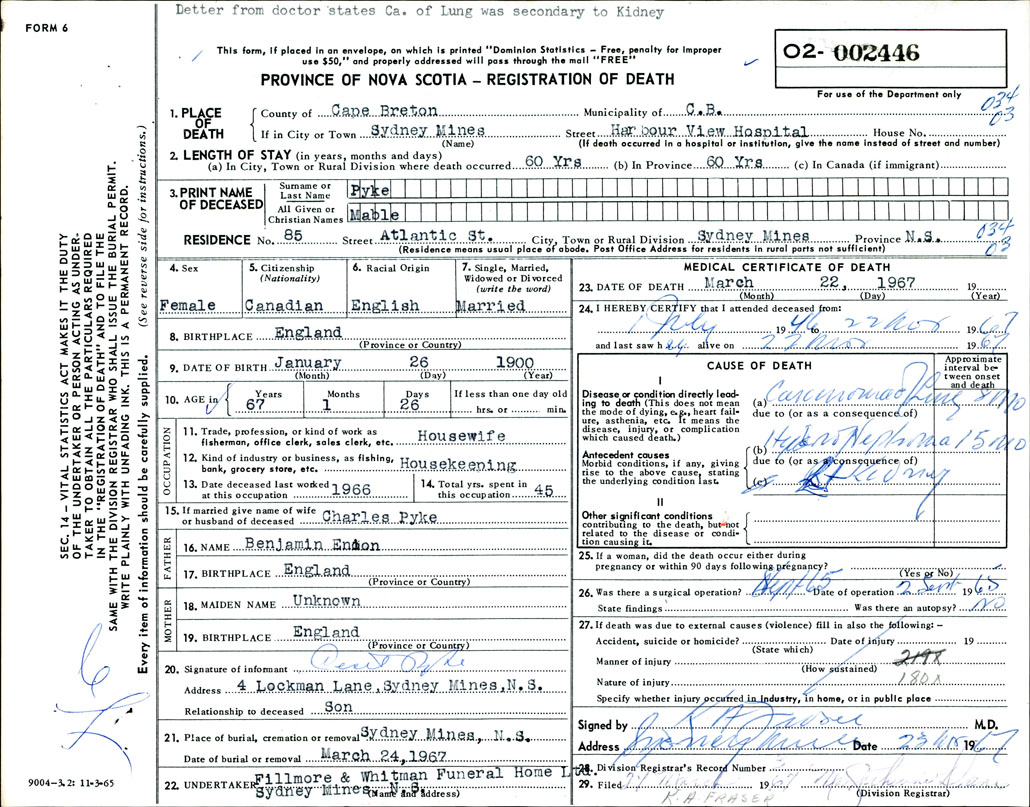 Detter from doctor states Ca. of Lung was secondary to Kidney
FORM 6
This form, if placed in an envelope, on which is printed "Dominion Statistics – Free, penalty for improper
use $50," and properly addressed will pass through the mail "FREE"
O2- 002446
PROVINCE OF NOVA SCOTIA – REGISTRATION OF DEATH
For use of the Department only
034
03
1. PLACE OF DEATH
County of Cape Breton Municipality of C.B.
If in City or Town Sydney Mines Street Harbour View Hospital House No.
(Name) (If death occurred in a hospital or institution, give the name instead of street and number)
2. LENGTH OF STAY (in years, months and days)
(a) In City, Town or Rural Division where death occurred 60 Yrs (b) In Province 60 Yrs (c) In Canada (if immigrant)
3. PRINT NAME OF DECEASED
Surname or Last Name Pyke
All Given or Christian Names Mable
RESIDENCE No. 85 Street Atlantic St. City, Town or Rural Division Sydney Mines Province N.S.
(Residence means usual place of abode. Post Office Address for residents in rural parts not sufficient)
034
03
4. Sex
Female
5. Citizenship
(Nationality)
Canadian
6. Racial Origin
English
7. Single, Married,
Widowed or Divorced
(write the word)
Married
8. BIRTHPLACE England
(Province or Country)
9. DATE OF BIRTH January 26 1900
(Month) (Day) (Year)
10. AGE in
Years Months Days If less than one day old
67 1 26 hrs. or min.
OCCUPATION
11. Trade, profession, or kind of work as
fisherman, office clerk, sales clerk, etc. Housewife
12. Kind of industry or business, as fishing,
bank, grocery store, etc. Housekeening
13. Date deceased last worked
at this occupation 1966
14. Total yrs. spent in
this occupation 45
15. If married give name of wife
or husband of deceased Charles Pyke
FATHER
16. NAME Benjamin
17. BIRTHPLACE England
(Province or Country)
MOTHER
18. MAIDEN NAME Unknown
19. BIRTHPLACE England
(Province or Country)
20. Signature of informant Pyke
Address 4 Lockman Lane, Sydney Mines, N.S.
Relationship to deceased Son
21. Place of burial, cremation or removal Sydney Mines, N.S.
Date of burial or removal March 24, 1967
22. UNDERTAKER Fillmore & Whitman Funeral Home Ltd.
Sydney Mines, N.S.
(Name and address)
MEDICAL CERTIFICATE OF DEATH
23. DATE OF DEATH March 22, 1967 19
(Month) (Day) (Year)
24. I HEREBY CERTIFY that I attended deceased from:
July 1946 to 22 Mar 1967
and last saw her alive on 22 Mar 1967
CAUSE OF DEATH
Approximate
interval be-
tween onset
and death
I
Disease or condition directly lead-
ing to death (This does not mean
the mode of dying, e.g., heart fail-
ure, asthenia, etc. It means the
disease, injury, or complication
which caused death.)
(a) Carcinoma of Lung 8 mo
due to (or as a consequence of)
Antecedent causes
Morbid conditions, if any, giving
rise to the above cause, stating
the underlying condition last.
(b) Hyper Nephroma 15 mo
due to (or as a consequence of)
(c) Kidney
II
Other significant conditions
contributing to the death, but not
related to the disease or condi-
tion causing it.
25. If a woman, did the death occur either during
pregnancy or within 90 days following pregnancy?
(Yes or No)
26. Was there a surgical operation? Sept 65 Date of operation 2 Sept 1965
State findings Was there an autopsy? No
27. If death was due to external causes (violence) fill in also the following: –
Accident, suicide or homicide? Date of injury 19
(State which)
Manner of injury
(How sustained)
219X
Nature of injury 180X
Specify whether injury occurred in industry, in home, or in public place
Signed by K A Fraser M.D.
Address Sydney Mines Date 23 Mar 1967
28. Division Registrar's Record Number
29. Filed 27 March 1967
(Division Registrar)
K.A FRASER
SEC. 14 – VITAL STATISTICS ACT MAKES IT THE DUTY
OF THE UNDERTAKER OR PERSON ACTING AS UNDER-
TAKER TO OBTAIN ALL THE PARTICULARS REQUIRED
IN THE "REGISTRATION OF DEATH" AND TO FILE THE
SAME WITH THE DIVISION REGISTRAR WHO SHALL ISSUE THE BURIAL PERMIT.
WRITE PLAINLY WITH UNFADING INK. THIS IS A PERMANENT RECORD.
Every item of information should be carefully supplied. (See reverse side for instructions.)
9004–3.2: 11-3-65